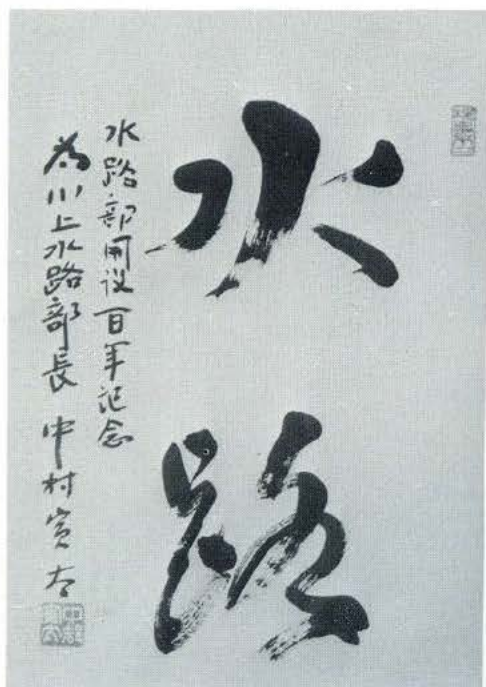 水路
水路部開設百年記念
為川上水路部長 中村寅太